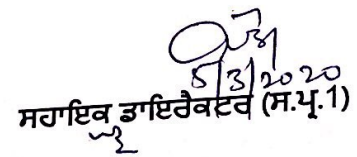 5/3/2020
ਸਹਾਇਕ ਡਾਇਰੈਕਟਰ (ਸ.ਪ੍ਰ.1)